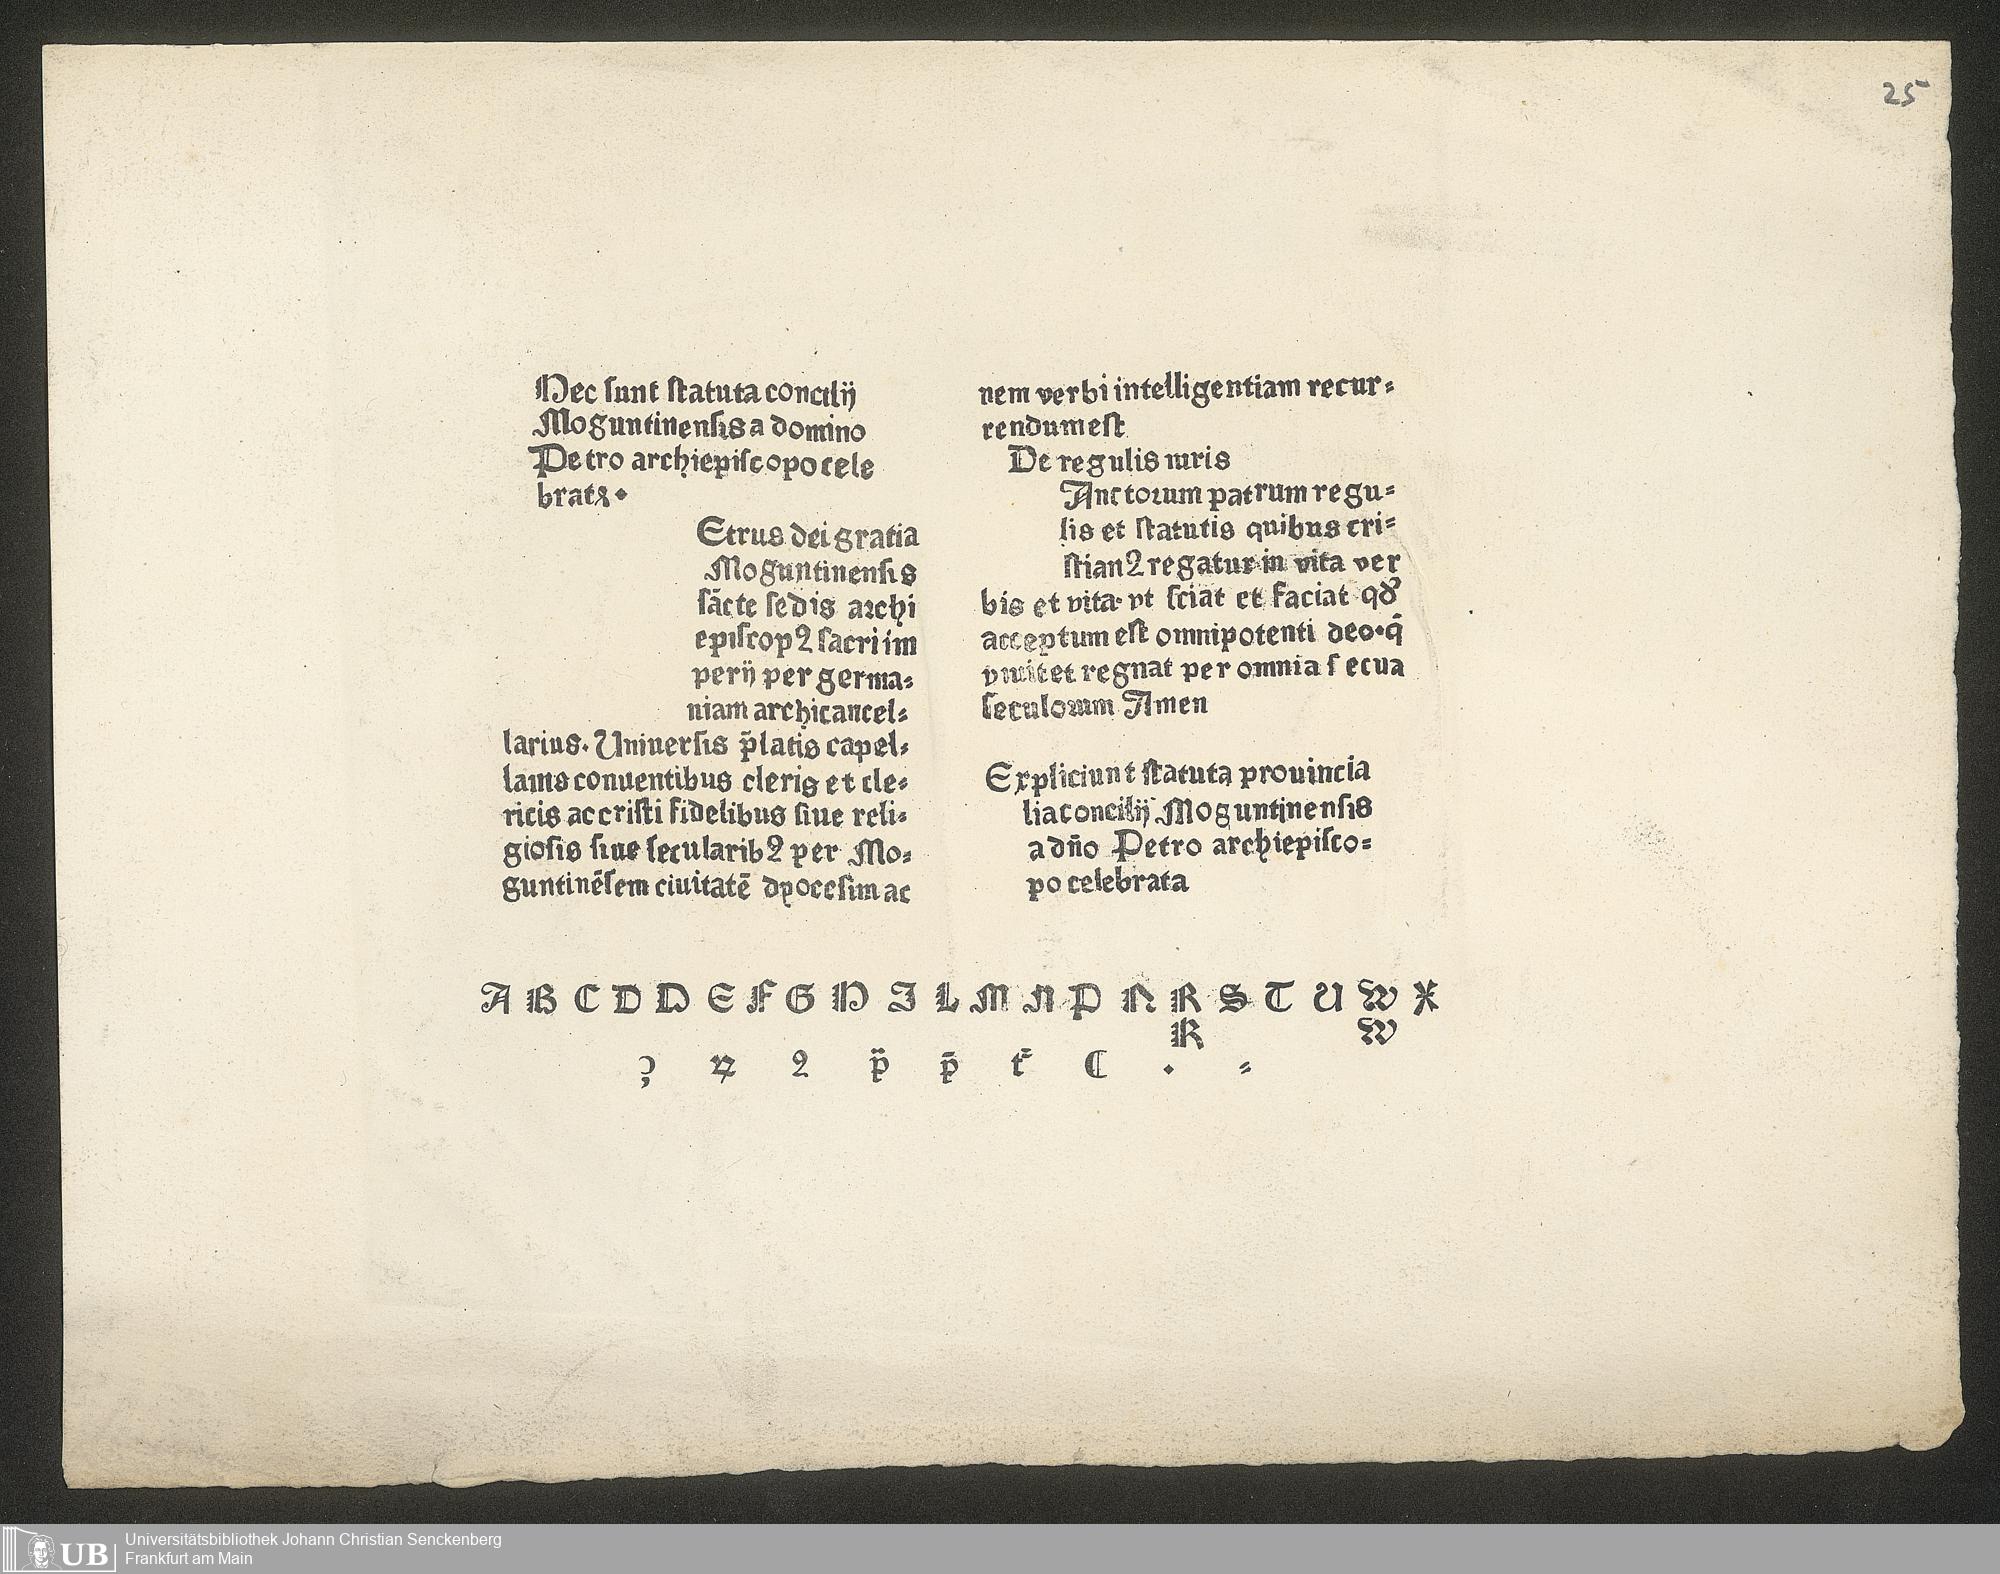 25
Hec ſunt ſtatuta concilij
Moguntinenſis a domino
Petro archiepiſcopo cele
brata •
Etrus dei gratia
Moguntinenſis
ſācte ſedis archi
epiſcopꝰ ſacri im
perij per germa⸗
niam archicancel⸗
larius. Uniuerſis p̄latis capel⸗
lanis conuentibus cleris et cle⸗
ricis ac criſti fidelibus ſiue reli⸗
gioſis ſiue ſecularibꝰ per Mo⸗
guntinēſem ciuitatē dyoceſim ac
nem verbi intelligentiam recur⸗
rendum eſt
De regulis iuris
Anctorum patrum regu⸗
lis et ſtatutis quibus cri⸗
ſtianꝰ regatur in vita ver
bis et vita· vt ſciat et faciat qd'
acceptum eſt omnipotenti deo•q̄
viuit et regnat per omnia ſecua
ſeculorum Amen
Expliciunt ſtatuta prouincia
lia concilij Moguntinenſis
a dn̄o Petro archiepiſco⸗
po celebrata
A B C D D E F G H I L M N P Q R S T U W X
R W
ꝰ p̈ p̄ t̄ C . ⸗
UB Universitätsbibliothek Johann Christian Senckenberg
Frankfurt am Main